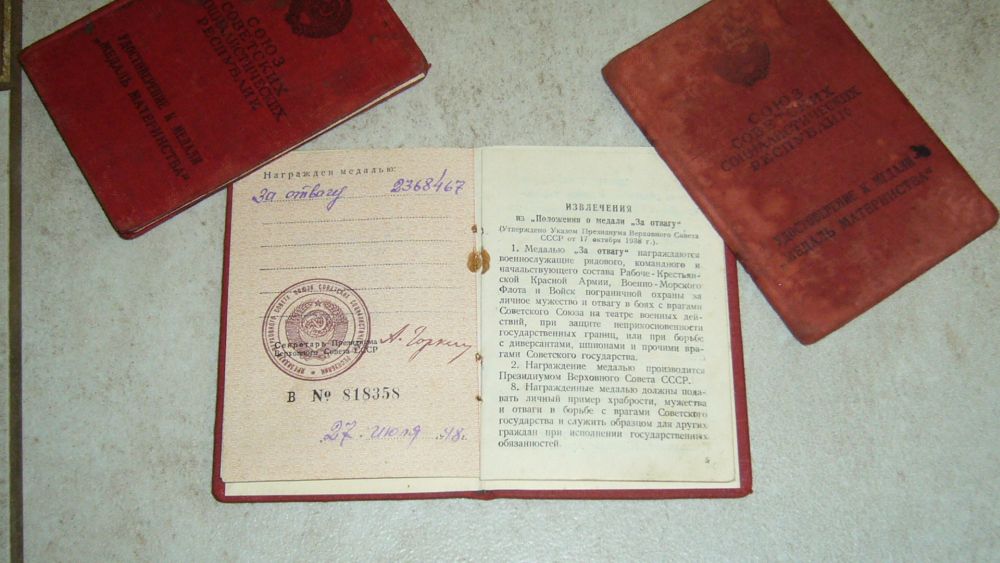 СОЮЗ
СОВЕТСКИХ
СОЦИАЛИСТИЧЕСКИХ
РЕСПУБЛИК
УДОСТОВЕРЕНИЕ К МЕДАЛИ
„МЕДАЛЬ МАТЕРИНСТВА“
СОЮЗ
СОВЕТСКИХ
СОЦИАЛИСТИЧЕСКИХ
РЕСПУБЛИК
УДОСТОВЕРЕНИЕ К МЕДАЛИ
„МЕДАЛЬ МАТЕРИНСТВА“
Награжден медалью:
За отвагу 2368467
Секретарь Президиума
Верховного Совета СССР
А. Горкин
В № 818358
27 июля 48г.
ИЗВЛЕЧЕНИЯ
из „Положения о медали „За отвагу“
(Утверждено Указом Президиума Верховного Совета
СССР от 17 октября 1938 г.).
1. Медалью „За отвагу“ награждаются
военнослужащие рядового, командного и
начальствующего состава Рабоче-Крестьян-
ской Красной Армии, Военно-Морского
Флота и Войск пограничной охраны за
личное мужество и отвагу в боях с врагами
Советского Союза на театре военных дей-
ствий, при защите неприкосновенности
государственных границ, или при борьбе
с диверсантами, шпионами и прочими вра-
гами Советского государства.
2. Награждение медалью производится
Президиумом Верховного Совета СССР.
8. Награжденные медалью должны пода-
вать личный пример храбрости, мужества
и отваги в борьбе с врагами Советского
государства и служить образцом для других
граждан при исполнении государственных
обязанностей.
5